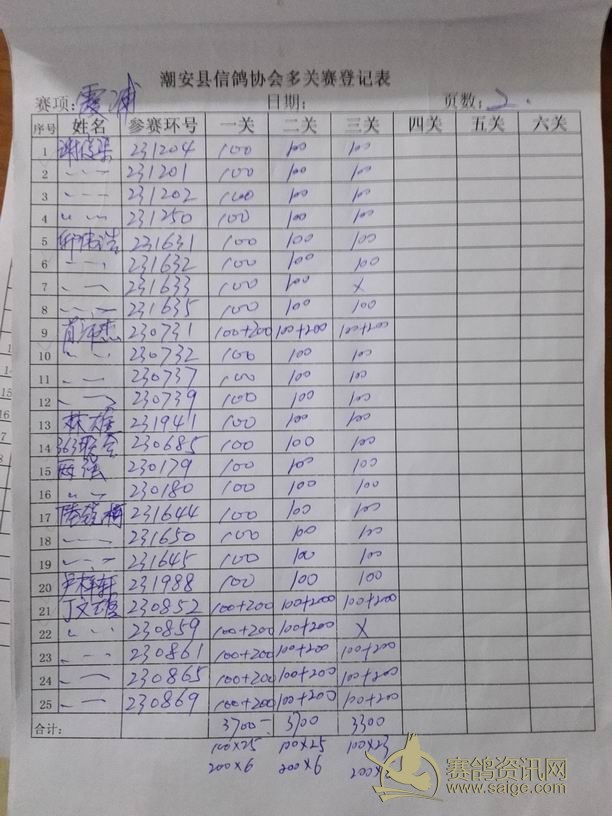 潮安县信鸽协会多关赛登记表
赛项: 霞浦 日期: 页数: 2.
序号 姓名 参赛环号 一关 二关 三关 四关 五关 六关
1 231204 100 100 100
2 〃 231201 100 100 100
3 〃 231202 100 100 100
4 〃 231250 100 100 100
5 231631 100 100 100
6 〃 231632 100 100 100
7 〃 231633 100 100 x
8 〃 231635 100 100 100
9 230731 100+200 100+200 100+200
10 〃 230732 100 100 100
11 〃 230737 100 100 100
12 〃 230739 100 100 100
13 林雄 231941 100 100 100
14 230685 100 100 100
15 230179 100 100 100
16 〃 230180 100 100 100
17 231644 100 100 100
18 〃 231650 100 100 100
19 〃 231645 100 100 100
20 231988 100 100 100
21 230852 100+200 100+200 100+200
22 〃 230859 100+200 100+200 x
23 〃 230861 100+200 100+200 100+200
24 〃 230865 100+200 100+200 100+200
25 〃 230869 100+200 100+200 100+200
合计: 3700 3700 3300
100x25 100x25 100x23
200x6 200x6
赛鸽资讯网
www.saige.com